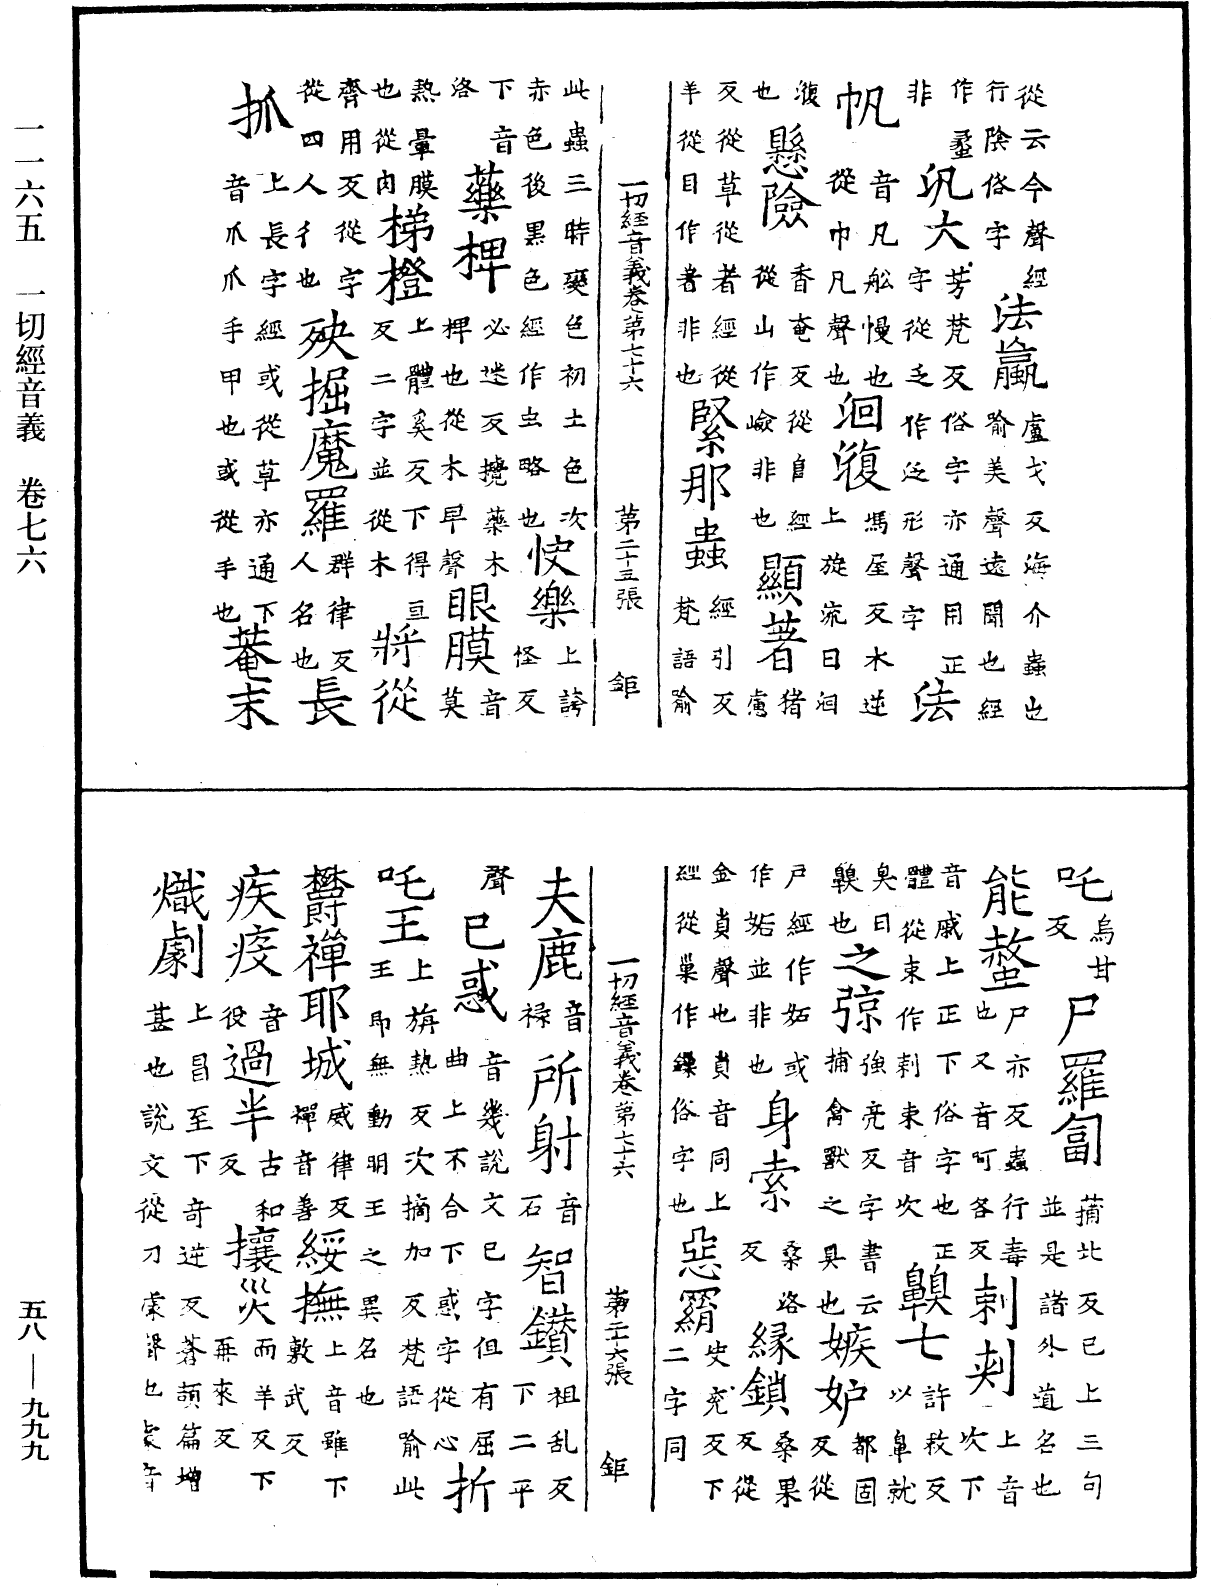 從云今聲經
行陰俗字
法蠃
盧戈反海介蟲也
喻美聲遠聞也經
作蠡
非
汎大
芳梵反俗字亦通用正
字從乏作泛形聲字
法
帆
音凡舩慢也
從巾凡聲也
洄澓
馮屋反水逆
上旋流曰洄
澓
也
懸險
香奄反從𨸏經
從山作嶮非也
顯著
猪
慮
反從草從者經從
羊從目作着非也
緊那蟲
經引反
梵語喻
一切經音義卷第七十六 第二十五張 鉅
此蟲三時變色初土色次
赤色後黑色經作虫略也
快樂
上誇
怪反
下音
洛
藥椑
必迷反攪藥木
椑也從木卑聲
眼膜
音
莫
熱暈膜
也從肉
梯橙
上體奚反下得亘
反二字並從木
將從
齊用反從字
從四人彳也
殃掘魔羅
群律反
人名也
長
抓
上長字經或從草亦通下
音爪爪手甲也或從手也
菴末
吒
烏甘
反
尸羅匐
蒱北反已上三句
並是諸外道名也
能螫
尸亦反蟲行毒
也又音呵各反
剌刾
上音
次下
音戚上正下俗字也正
體從朿作刺朿音次
齅七
許救反
以鼻就
臭曰
齅也
之弶
強亮反字書云
捕禽獸之具也
嫉妒
都固
反從
戶經作妬或
作妬並非也
身索
桑洛
反
緣鎖
桑果
反從
金𧴪聲也𧴪音同上
經從巢作鏁俗字也
惡罥
史兖反下
二字同
一切經音義卷第七十六 第二十六張 鉅
夫鹿
音
祿
所射
音
石
智鑽
祖乱反
下二平
聲
已惑
音幾說文已字但有屈
曲上不合下惑字從心
折
吒王
上旃熱反次摘加反梵語喻此
王即無動明王之異名也
欝禪耶城
威律反
禪音善
綏撫
上音雖下
敷武反
疾疫
音
役
過半
古和
反
攘災
而羊反下
再來反
熾劇
上昌至下奇逆反蒼頡篇增
甚也說文從刀豦聲也豦音
一一六五 一切經音義 卷七六
五八—九九九